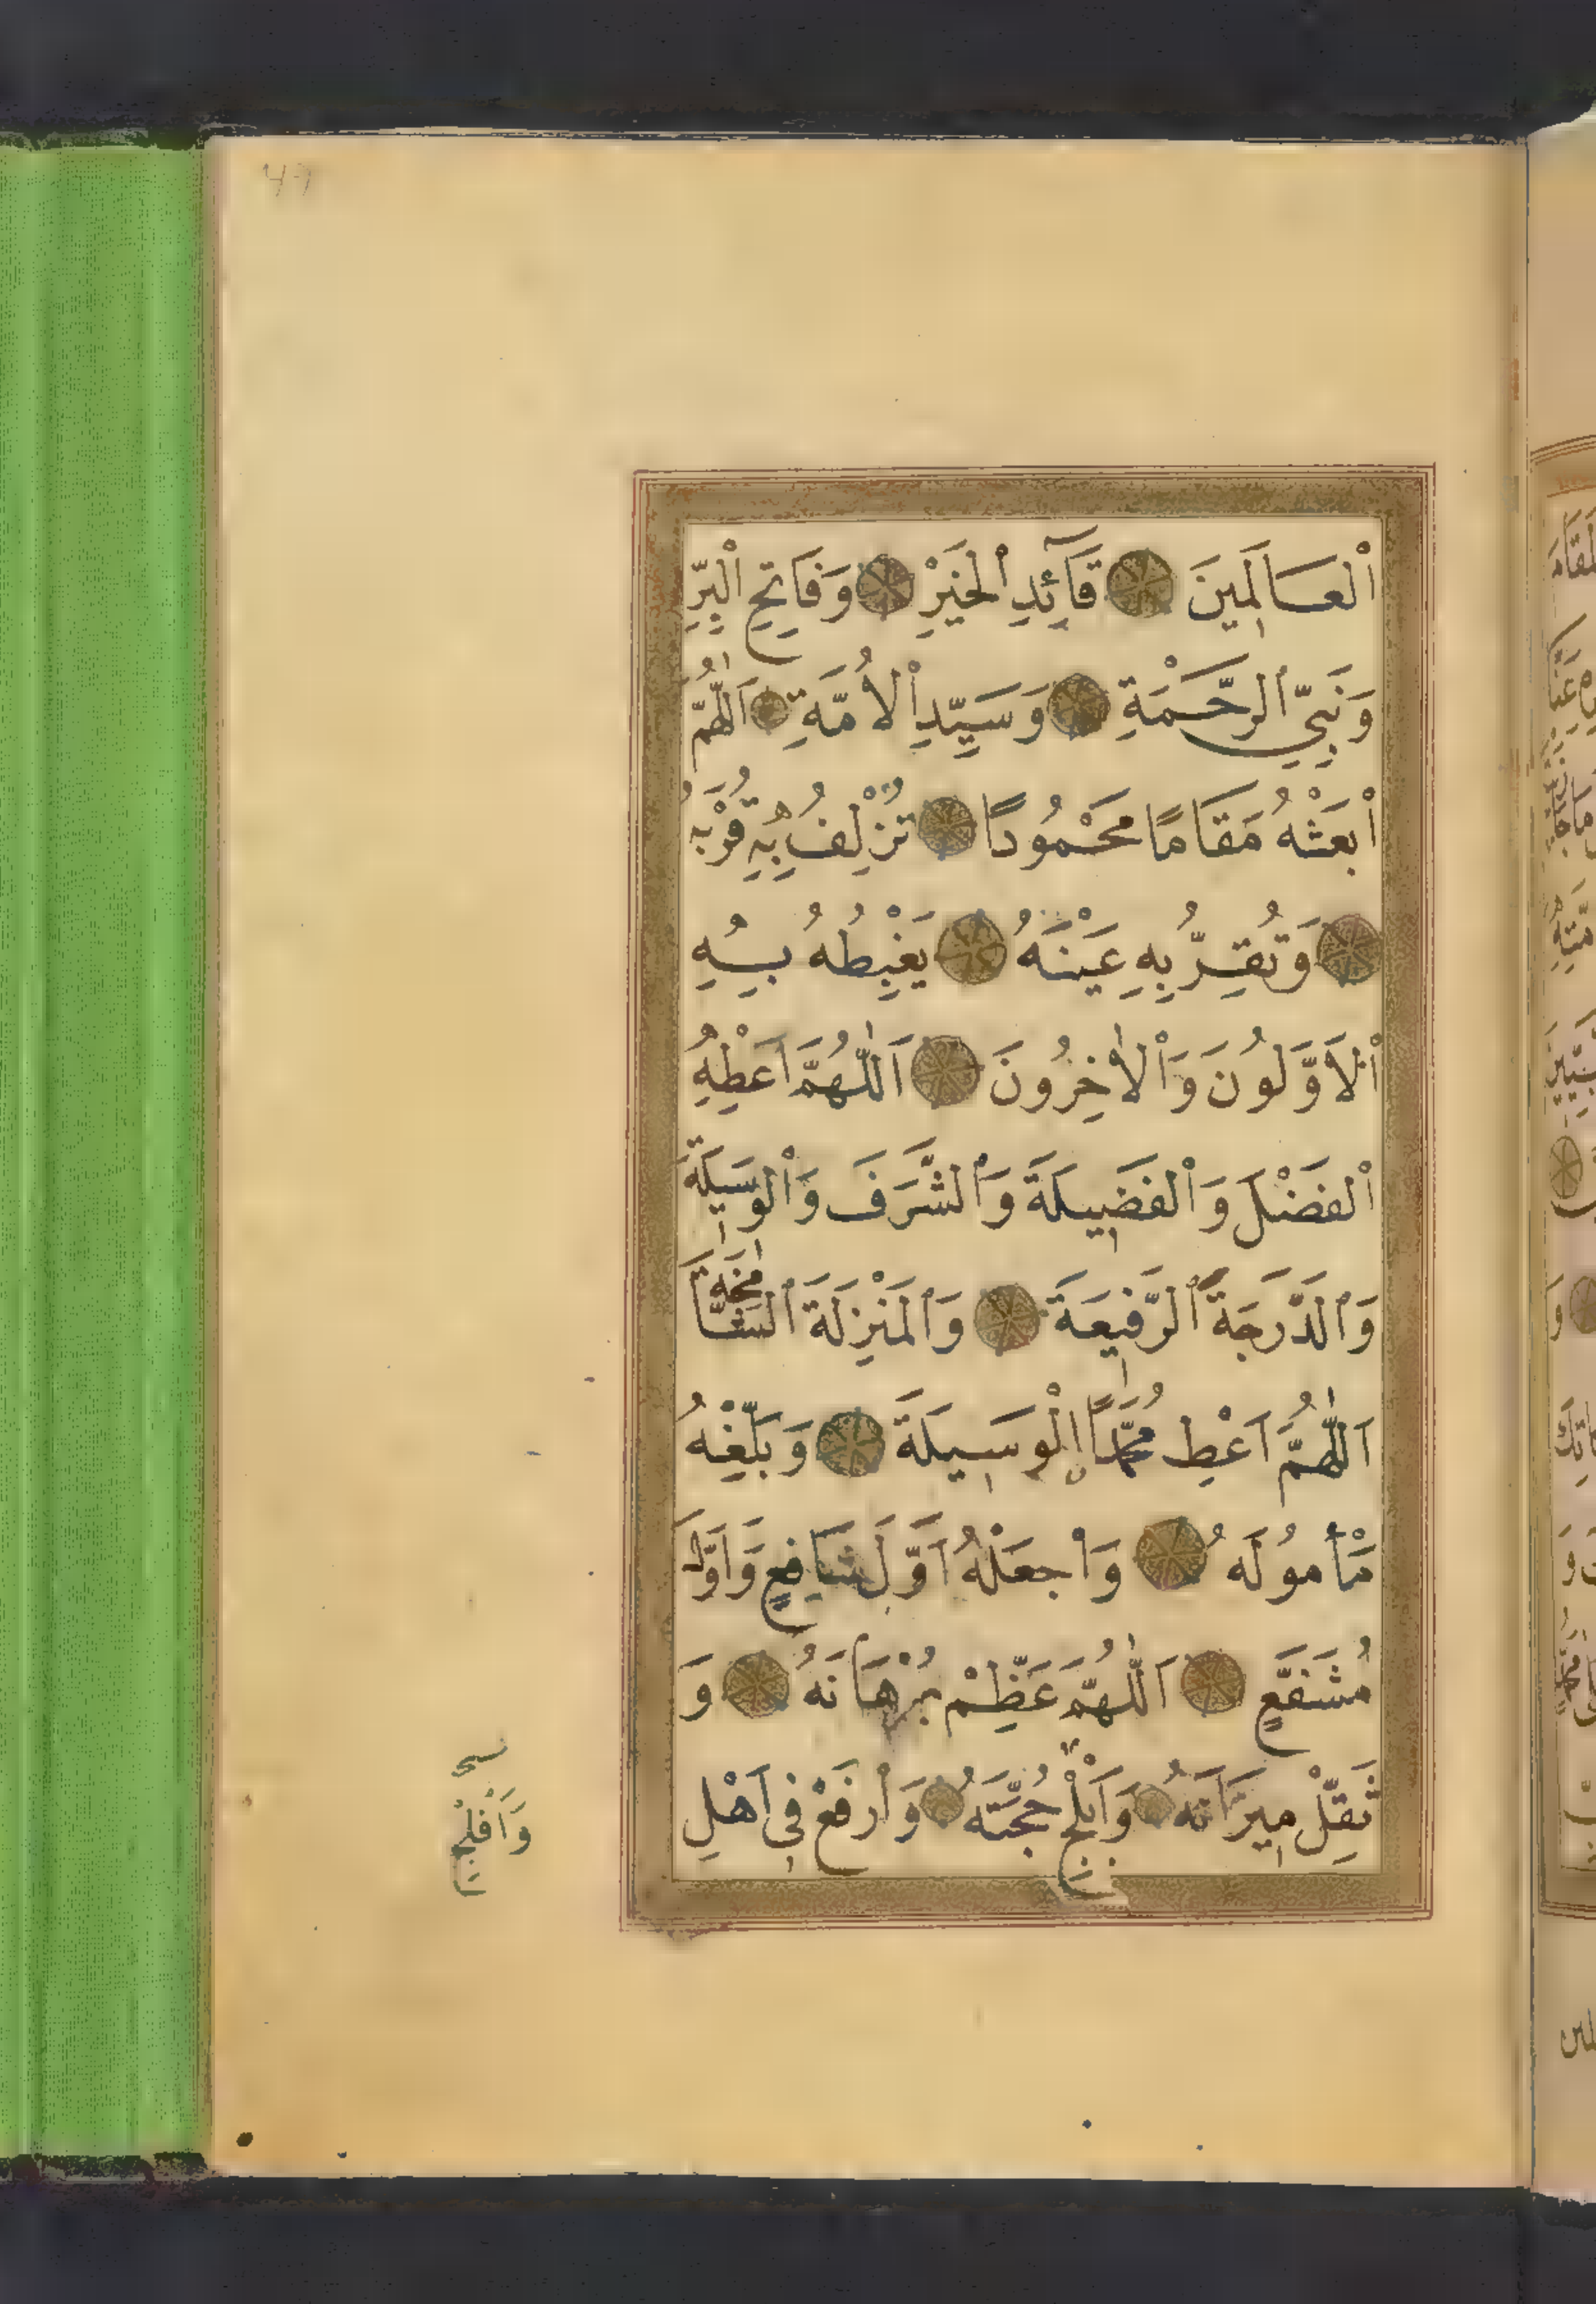 ٱلْعَالَمِينَ قَآئِدِ ٱلْخَيْرِ وَفَاتِحِ ٱلْبِرِّ
وَنَبِيِّ ٱلرَّحْمَةِ وَسَيِّدِ ٱلْأُمَّةِ اَللّٰهُمَّ
ٱبْعَثْهُ مَقَامًا مَحْمُودًا تُزْلِفُ بِهِ قُرْبَهُ
وَتُقِرُّ بِهِ عَيْنَهُ يَغْبِطُهُ بِهِ
ٱلْاَوَّلُونَ وَٱلْاٰخِرُونَ اَللّٰهُمَّ اَعْطِهِ
ٱلْفَضْلَ وَٱلْفَضِيلَةَ وَٱلشَّرَفَ وَٱلْوَسِيلَةَ
وَٱلدَّرَجَةَ ٱلرَّفِيعَةَ وَٱلْمَنْزِلَةَ ٱلشَّامِخَةَ
اَللّٰهُمَّ اَعْطِ مُحَمَّدًا ٱلْوَسِيلَةَ وَبَلِّغْهُ
مَأْمُولَهُ وَٱجْعَلْهُ اَوَّلَ شَافِعٍ وَاَوَّلَ
مُشَفَّعٍ اَللّٰهُمَّ عَظِّمْ بُرْهَانَهُ وَ
ثَقِّلْ مِيزَانَهُ وَاَبْلِجْ حُجَّتَهُ وَٱرْفَعْ فِي اَهْلِ
وَاَفْلِجْ